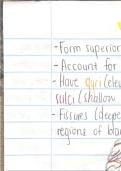 - Form superior
- Account for
- Have gyri (ele
sulci (shallow
- Fissures (deepe
regions of